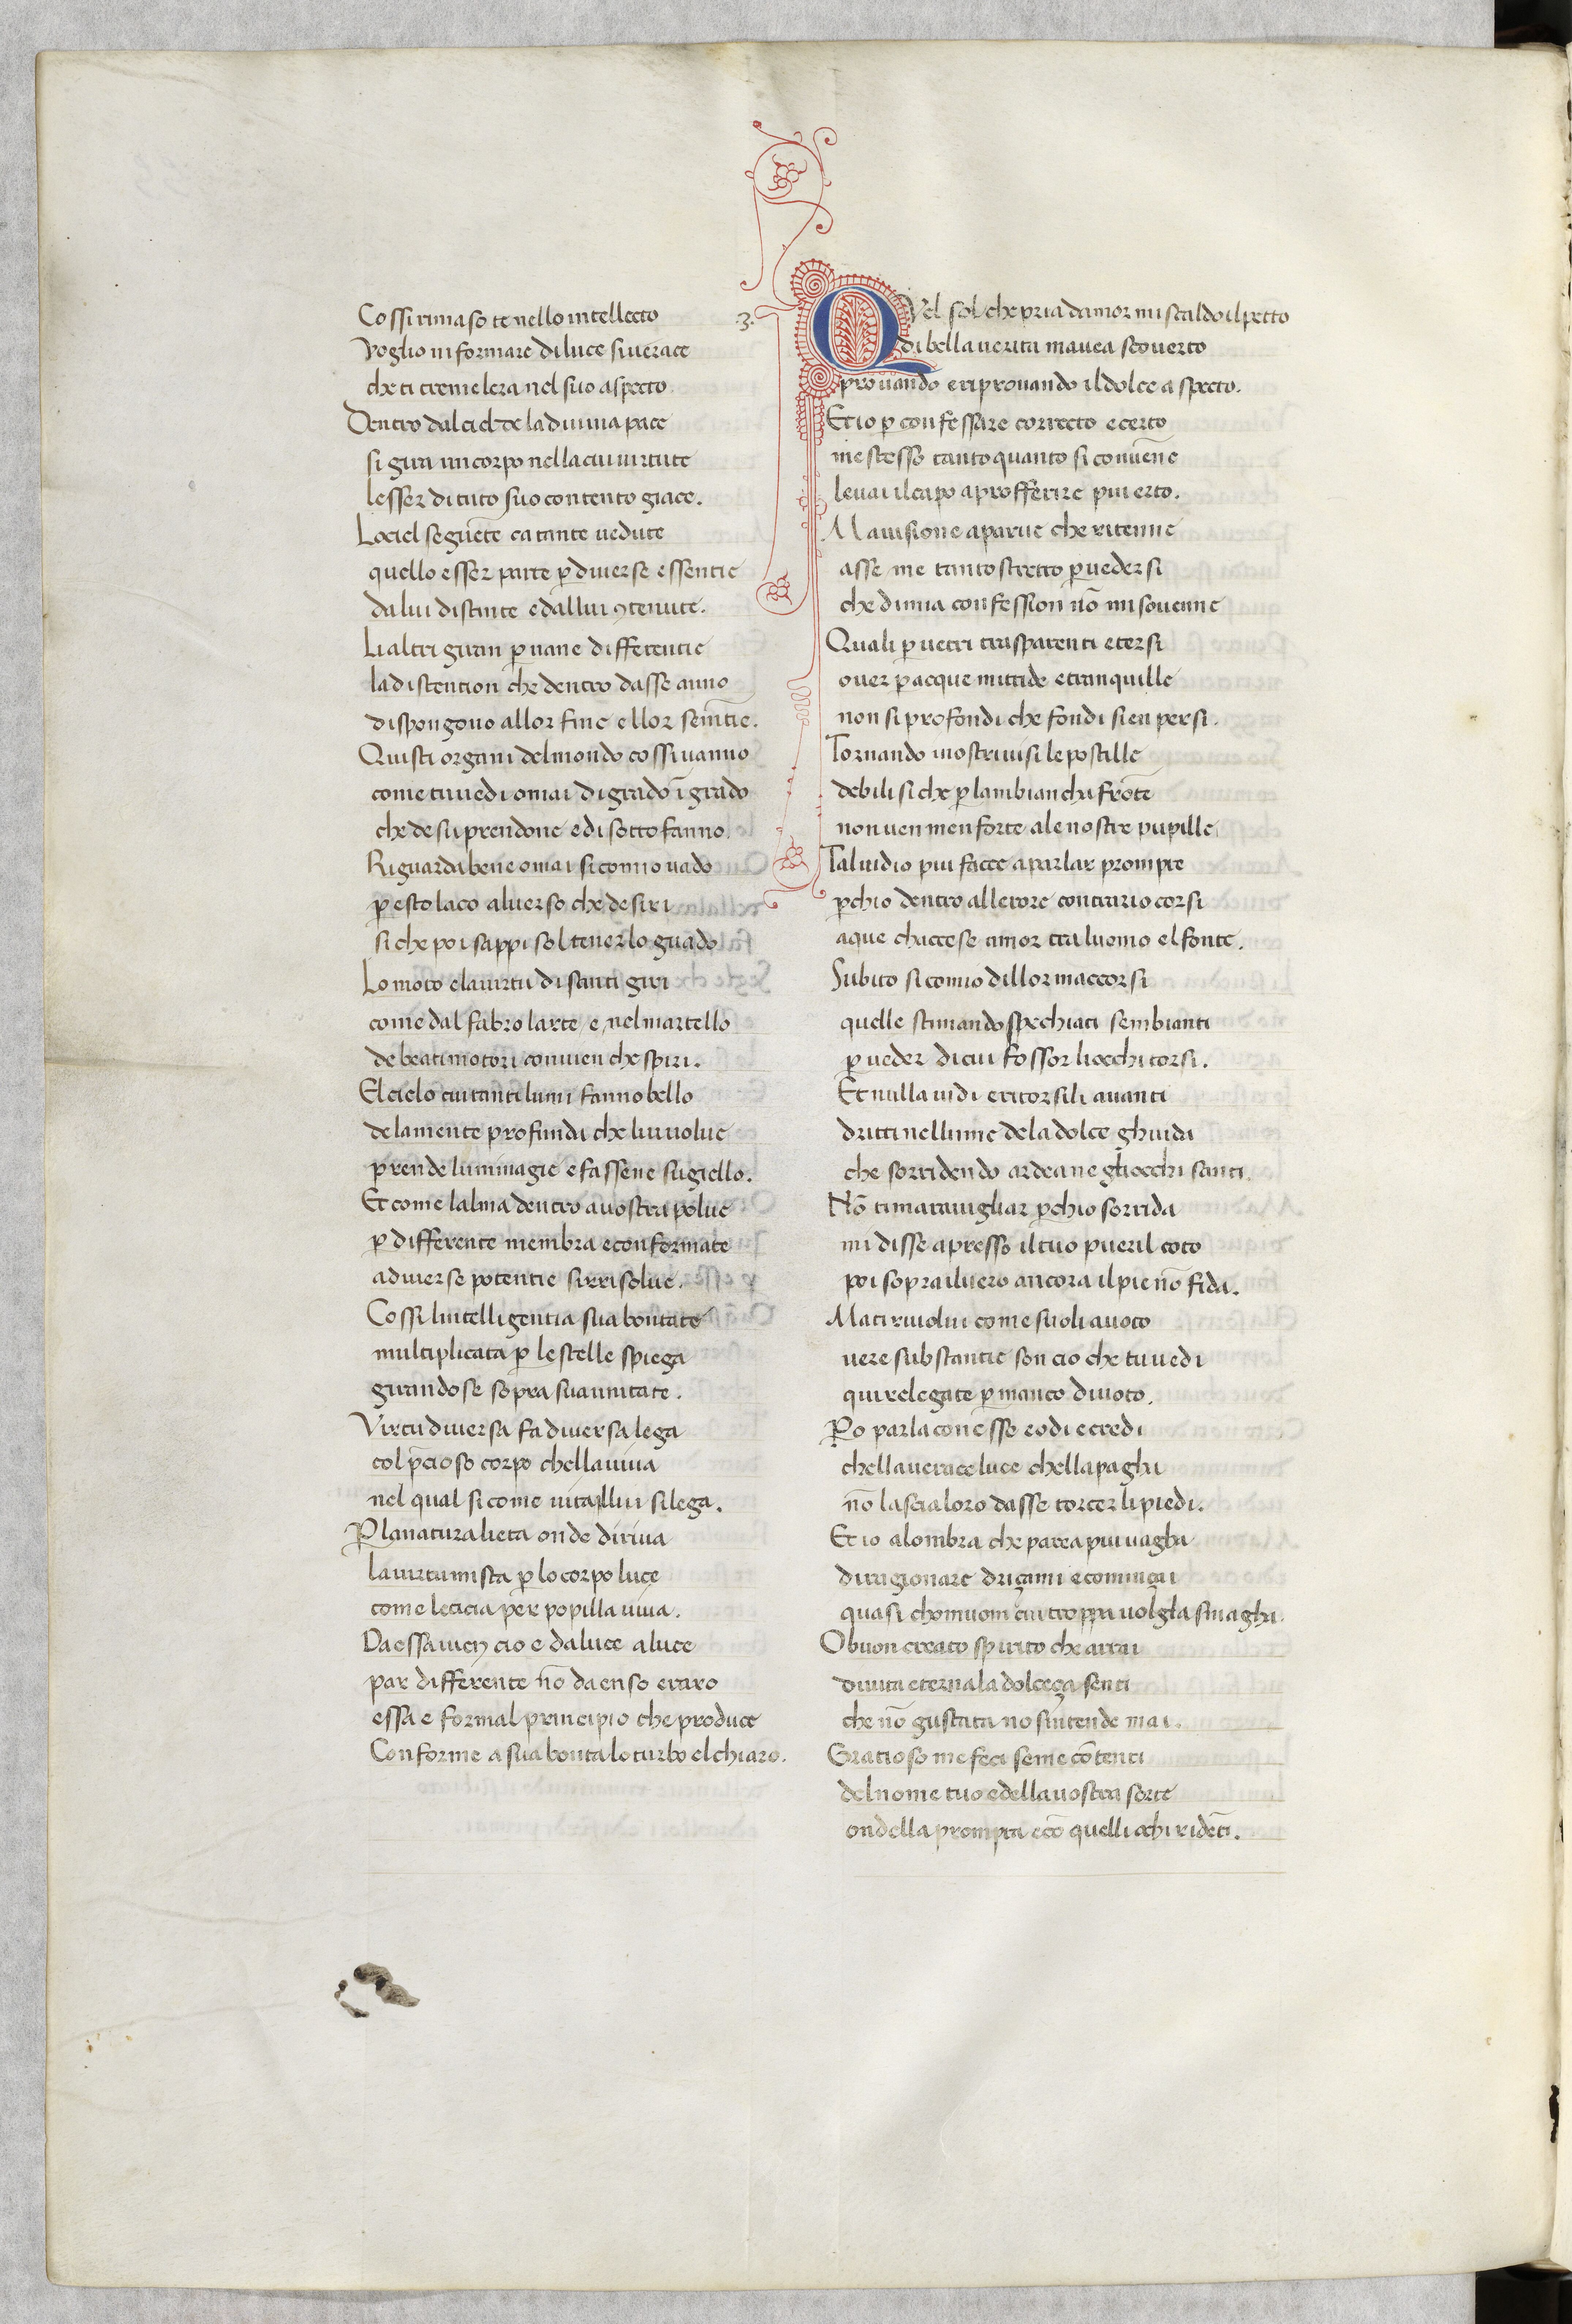 Cossi rimaso te nello intellecto
voglio informare di luce si verace
che ti tremelera nel suo aspecto
Dentro dal ciel de la divina pace
si gira un corpo nella cui virtute
lesser di tuto suo contento giace.
Lo ciel seguēte ca tante vedute
quello esser parte p̲ diverse essentie
da lui distinte e dallui ꝯtenute.
Li altri giran p̲ varie differentie
la distention che dentro dasse anno
dispongono allor fine e llor sem̄tie.
Quisti organi del mondo cossi vanno
come tu vedi omai di grado ī grado
che de su prendone e di sotto fanno.
Riguarda bene omai si como vado
p̲ esto laco al verso che desiri
si che poi sappi sol tener lo guado
Lo moto e la virtu di santi giri
come dal fabro larte e nel martello
de beati motori convien che spiri.
El cielo cui tanti lumi fanno bello
de la mente profunda che lui volue
prende lu imagie e fassene sugiello.
Et come lalma dentro a vostra polue
p̲ differente membra e conformate
a diverse potentie si risolue.
Cossi lintelligentia sua bontate
multiplicata p̲ le stelle spiega
girandose sopra sua unitate.
Virtu diversa fa diversa lega
col p̄cioso corpo chella viva
nel qual si come vita illui si lega.
P̲ la natura lieta onde diriva
la virtu mista p̲ lo corpo luce
come leticia per popilla viva.
Da essa vien cio e da luce a luce
par differente nō da enso e raro
essa e formal principio che produce
Conforme a sua bonta lo turbo el chiaro.
.3.
QVel sol che pria damor mi scaldo il petto
di bella verita mavea scoverto
provando e riprovando il dolce aspecto.
Et io p̲ confessare correcto e certo
me stesso tanto quanto si convēne
levai il capo a profferire piu erto.
Ma visione aparve che ritenne
asse me tanto stretto p̲ vedersi
che di mia confession nō mi sovenne
Quali p̲ vetri trasparenti e tersi
over p̲ acque nittide e tranquille
non si profondi che fondi sien persi.
Tornando nostri visi le postille
debili si che p̲la in bianchа frōte
non ven men forte a le nostre pupille
Tal vidio piu facce a parlar prompte
p̲chio dentro allerore contrario corsi
a que chaccese amor tra luomo el fonte.
Subito si comio di llor maccorsi
quelle stimando spechiati sembianti
p̲ veder di cui fossor li occhi torsi.
Et nulla vidi e ritorsili avanti
dritti nel lume de la dolce ghuida
che sorridendo ardea ne gliocchi santi.
Nō ti maravigliar p̲chio sorrida
mi disse apresso il tuo pueril coto
poi sopra il vero ancora il pie nō fida.
Ma ti rivolui come suoli a voto
vere substantie son cio che tu vedi
qui relegate p̲ manco di voto.
P̲o parla con esse e odi e credi
chella verace luce chella pagha
nō lascia loro dasse torcer li piedi.
Et io a lombra che parea piu vagha
di ragionare driçami e cominçai
quasi chomuom cui troppa voglia smagha.
O buon creato spirito che a rai
di vita eterna la dolceça senti
che nō gustata no sintende mai.
Gratioso me feci se me cōtenti
del nome tuo e della vostra sorte
ondella prompta e cō quelli ochi ridēti.